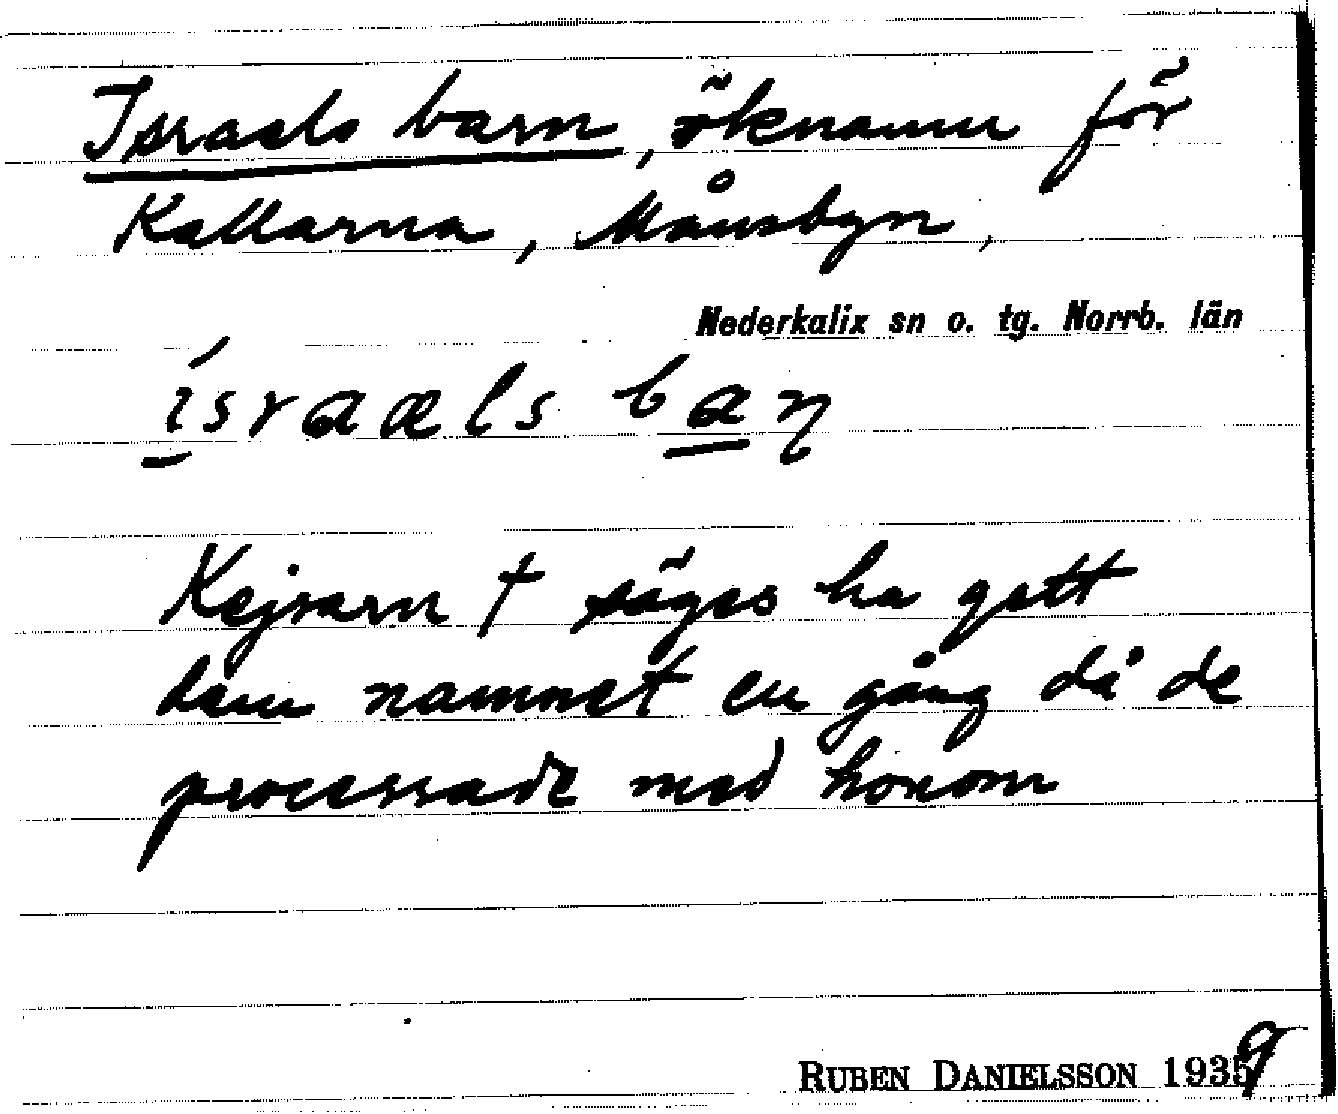 Israels barn, öknamn för
Kallarna, Månsbyn,
Nederkalix sn o. tg. Norrb. län
ísraæls baɳ
Kejsarn † säges ha gett
dem namnet en gång då de
processade med honom
RUBEN DANIELSSON 1939